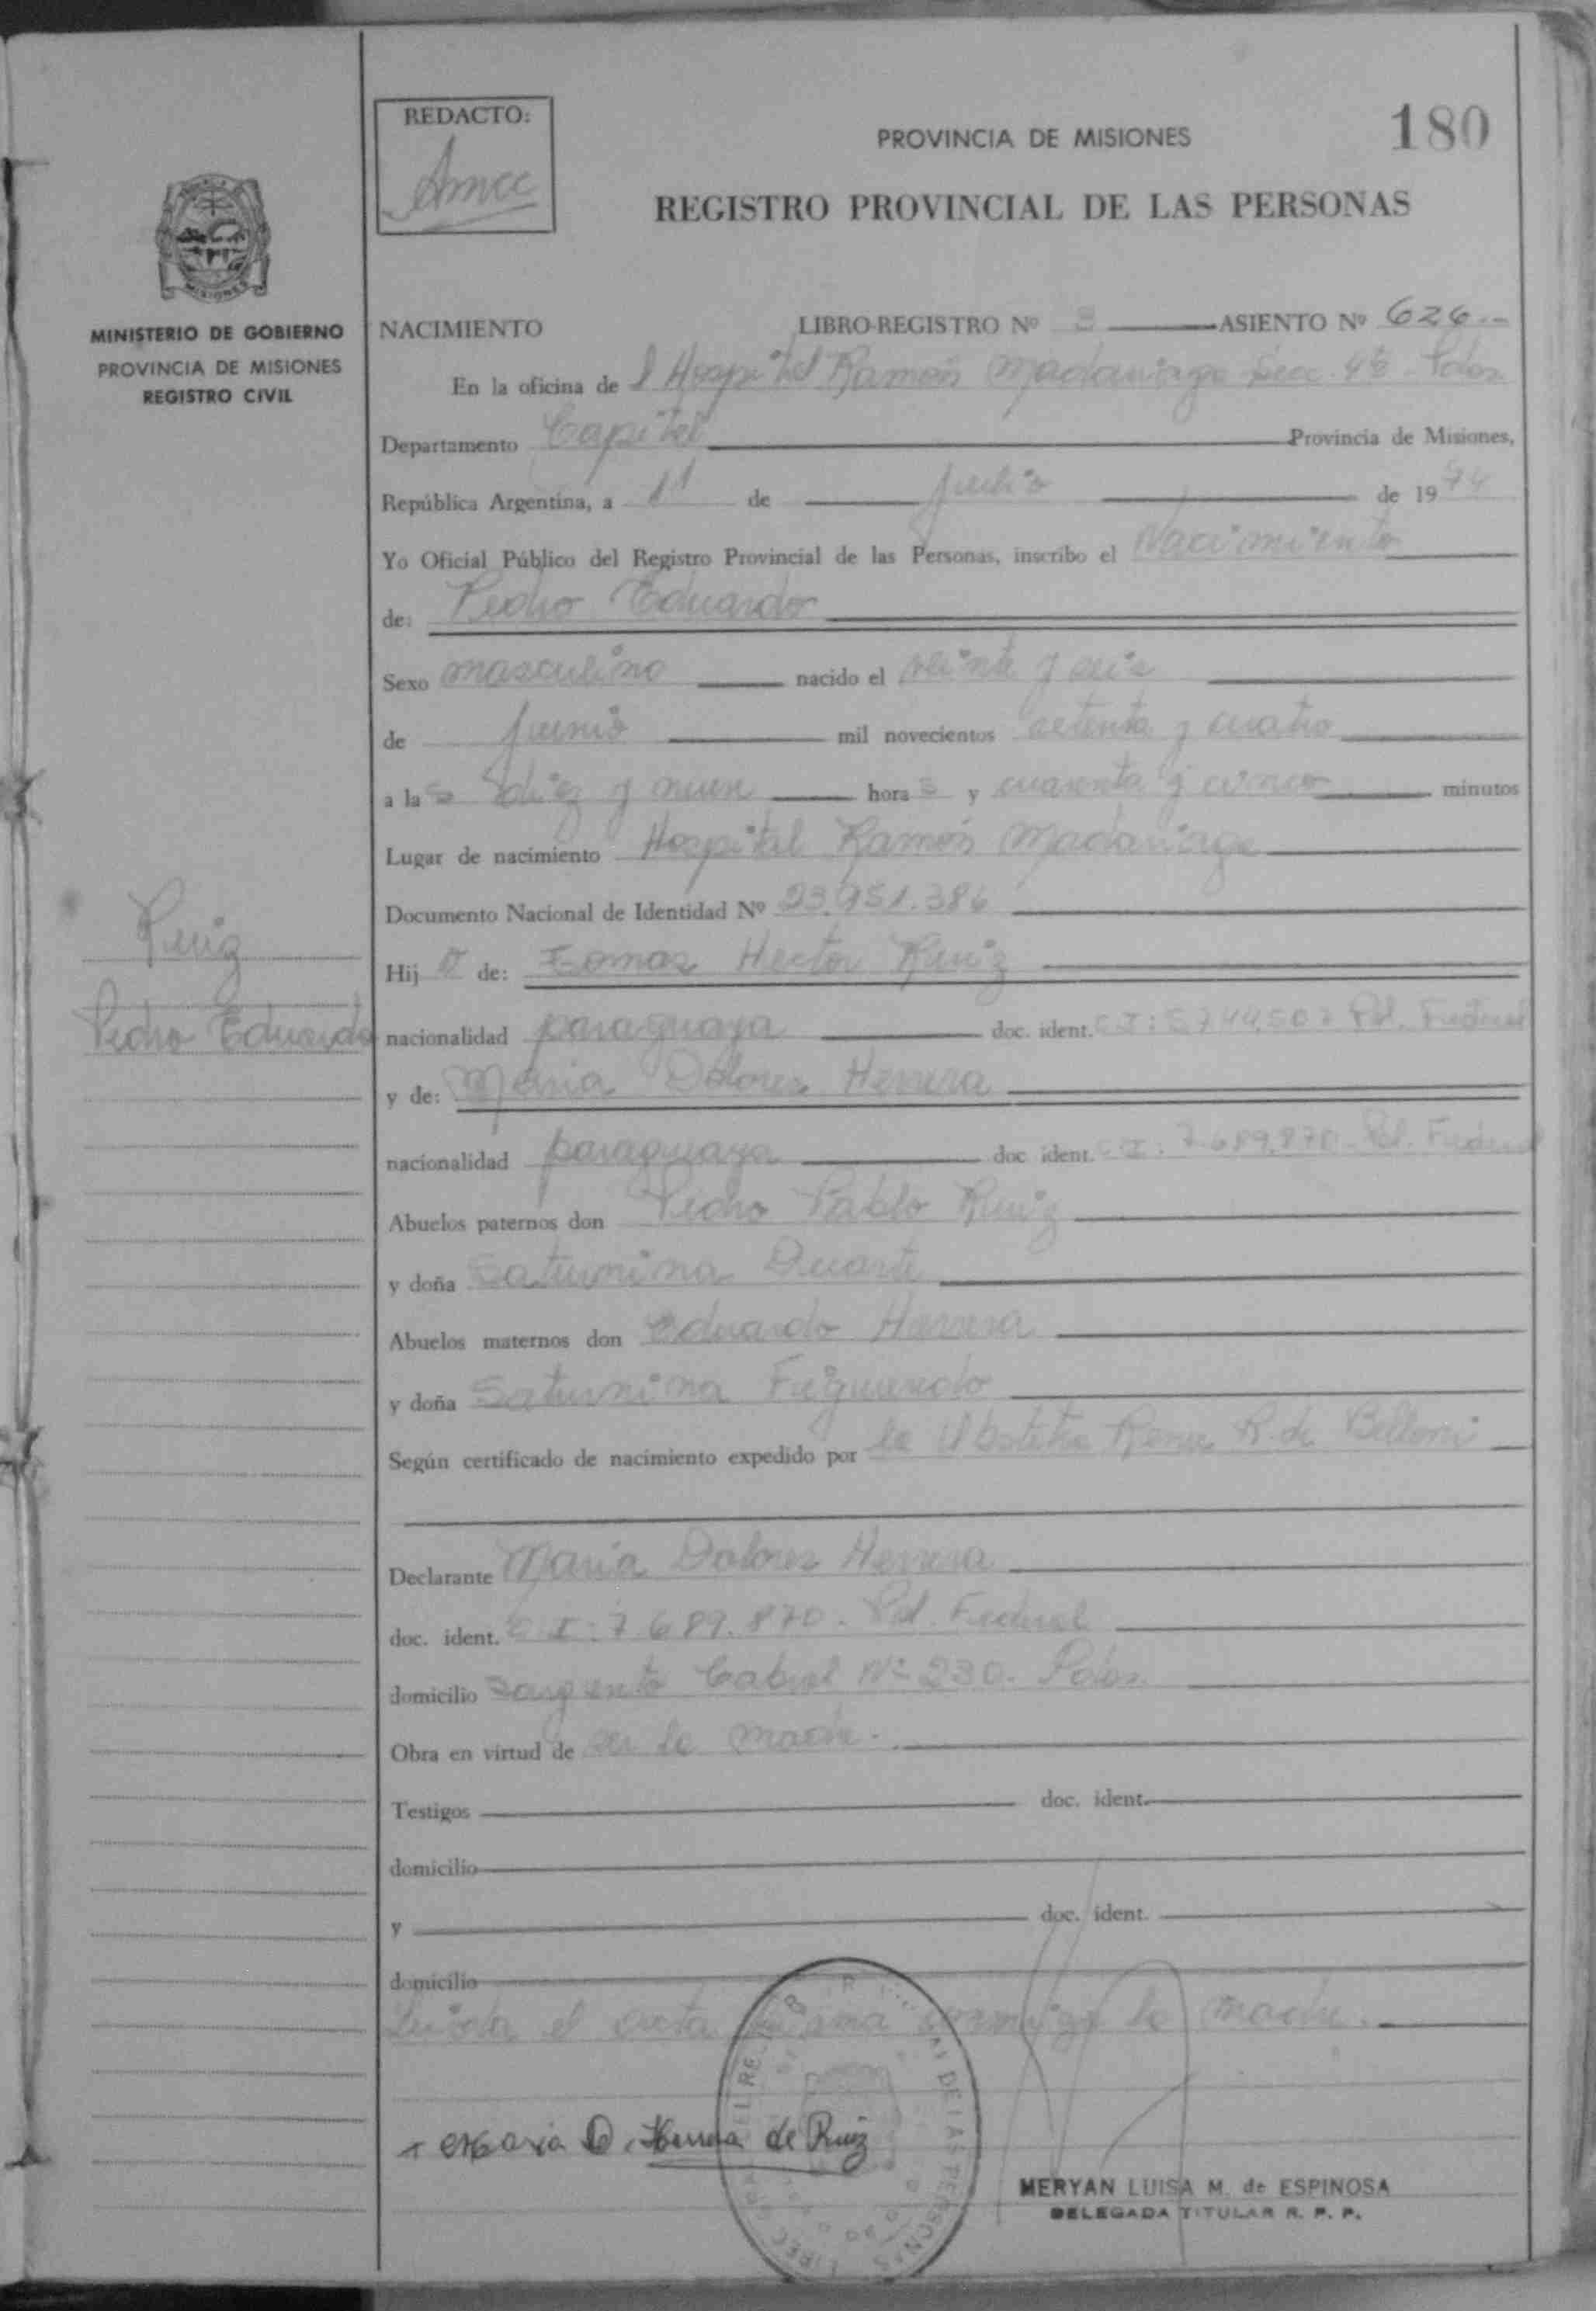 180
REDACTO:
PROVINCIA DE MISIONES
REGISTRO PROVINCIAL DE LAS PERSONAS
MISIONES
MINISTERIO DE GOBIERNO
PROVINCIA DE MISIONES
REGISTRO CIVIL
NACIMIENTO LIBRO-REGISTRO Nº 3 ASIENTO Nº 626
En la oficina de l Hospital Ramón Madariaga Secc. 4ta. Pdas
Departamento Capital Provincia de Misiones,
República Argentina, a 11 de julio de 1974
Yo Oficial Público del Registro Provincial de las Personas, inscribo el Nacimiento
de: Pedro Eduardo
Sexo masculino nacido el veinte y seis
de junio mil novecientos setenta y cuatro
a las diez y nueve horas y cuarenta y cinco minutos
Lugar de nacimiento Hospital Ramón Madariaga
Documento Nacional de Identidad Nº 23.951.386
Ruiz
Pedro Eduardo
Hijo de: Tomas Hector Ruiz
nacionalidad paraguaya doc. ident. C.I: 5.744.507 Pol. Federal
y de: Maria Dolores Herrera
nacionalidad paraguaya doc ident. C.I: 7.689.870 - Pol. Federal
Abuelos paternos don Pedro Pablo Ruiz
y doña Saturnina Duarte
Abuelos maternos don Eduardo Herrera
y doña Saturnina Figueredo
Según certificado de nacimiento expedido por la Obstetra R. de Belloni
Declarante Maria Dolores Herrera
doc. ident. C.I: 7.689.870. Pol. Federal
domicilio Sargento Cabral Nº 230. Pdas.
Obra en virtud de ser la madre.
Testigos doc. ident.
domicilio
y doc. ident.
domicilio
Leida el acta firma conmigo la madre.
Maria D. Herrera de Ruiz
MERYAN LUISA M. de ESPINOSA
DELEGADA TITULAR R. P. P.